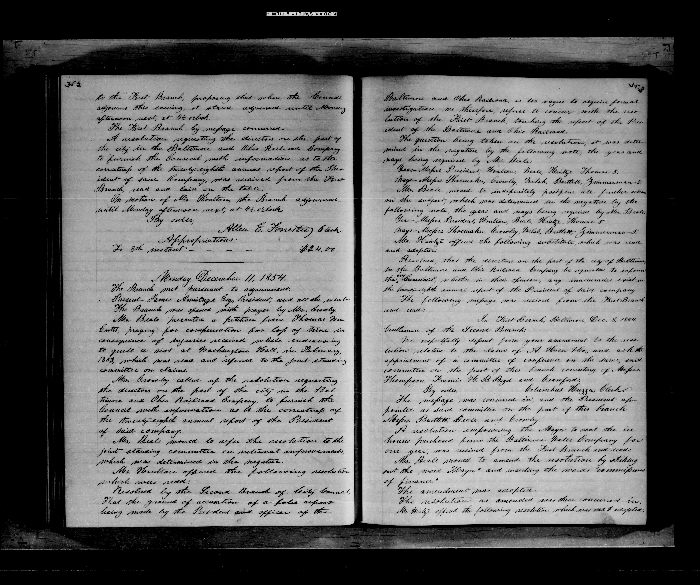 352
to the First Branch, proposing that when the Council
adjourns this evening, it stand adjourned until Monday
afternoon next, at 4 o'clock.
The First Branch by message concurred.
A resolution requesting the directors on the part of
the city in the Baltimore and Ohio Railroad Company
to furnish the Council with information as to the
correctness of the twenty-eighth annual report of the Pres
ident of said Company, was received from the First
Branch, read and laid on the table.
On motion of Mr. the Branch adjourned
until Monday afternoon next, at 4 o'clock
By order,
Allen E. Forrester, Clerk
Appropriations
To 8th instant $24.00
Monday December 11, 1854.
The Branch met pursuant to adjournment.
Present James Armitage Esq President, and all the members
The Branch was opened with prayer by Mr. Crowly
Mr. Beale presented a petition from Thomas Mc
praying for compensation for loss of time in
consequence of injuries received while endeavoring
to quell a riot at Washington Hall, in February,
which was read and referred to the joint standing
committee on claims.
Mr. Crowly called up the resolution requesting
the directors on the part of the city in the Balti
more and Ohio Railroad Company, to furnish the
Council with information as to the correctness of
the twenty-eighth annual report of the President
of said company.
Mr. Beale moved to refer the resolution to the
joint standing committee on internal improvements
which was determined in the negative.
Mr. offered the following resolution
which was read:
Resolved by the Second Branch of City Council,
That the ground of accusation of a false report
being made by the President and officers of the
Baltimore and Ohio Railroad, is too vague to require formal
investigation, we therefore, refuse to concur with the reso
lution of the First Branch, touching the report of the Pres
ident of the Baltimore and Ohio Railroad.
The question being taken on the resolution, it was deter
mined in the negative by the following vote, the yeas and
nays being required by Mr. Beale.
Yeas Messrs President Beale, Thomas 5.
Nays Messrs Shoemaker, Crowly, Bartlett, Zimmerman 5
Mr. Beale moved to indefinitely postpone all further action
on the subject, which was determined in the negative by the
following vote, the yeas and nays being required by Mr. Beale;
Yeas Messrs President, Beale, Thomas 5
Nays Messrs Shoemaker, Crowly, Bartlett, Zimmerman 5
Mr. offered the following substitute which was read
and adopted:
Resolved, that the directors on the part of the city of Baltimore
in the Baltimore and Ohio Railroad Company be requested to inform
the Council, whether in their opinion, any inaccuracies exist in
the twenty-eighth annual report of the President of said company.
The following message was received from the First Branch
and read:
In First Branch, Baltimore Dec. 8, 1854
Gentlemen of the Second Branch:
We respectfully dissent from your amendment to the reso
lution relative to the claim of and ask the
appointment of a committee of conference on the same; said
committee on the part of this Branch consisting of Messrs
Thompson, and Crawford.
By order, Clerk
The message was concurred in, and the President ap
pointed as said committee on the part of this Branch
Messrs Bartlett, Beale and Crowly.
A resolution empowering the Mayor to rent the
house purchased from the Baltimore Water Company for
one year, was received from the First Branch and read.
Mr. Beale moved to amend the resolution by striking
out the word "Mayor" and inserting the words "commissioners
of finance".
The amendment was adopted.
The resolution as amended was then concurred in.
Mr. offered the following resolution which was read & adopted: